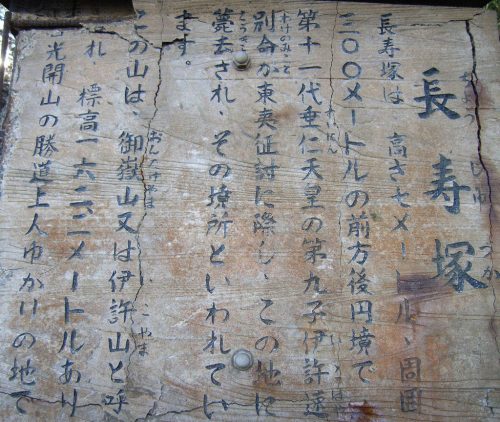 長寿塚
長寿塚は 高さ七メートル、周囲
三〇〇メートルの前方後円墳で
第十一代垂仁天皇の第九子伊許速
別命が東夷征討に際し、この地に
薨去され、その場所といわれてい
ます。
この山は、御嶽山又は伊許山と呼
れ 標高 メートルあり
光開山の勝道上人ゆかりの地で